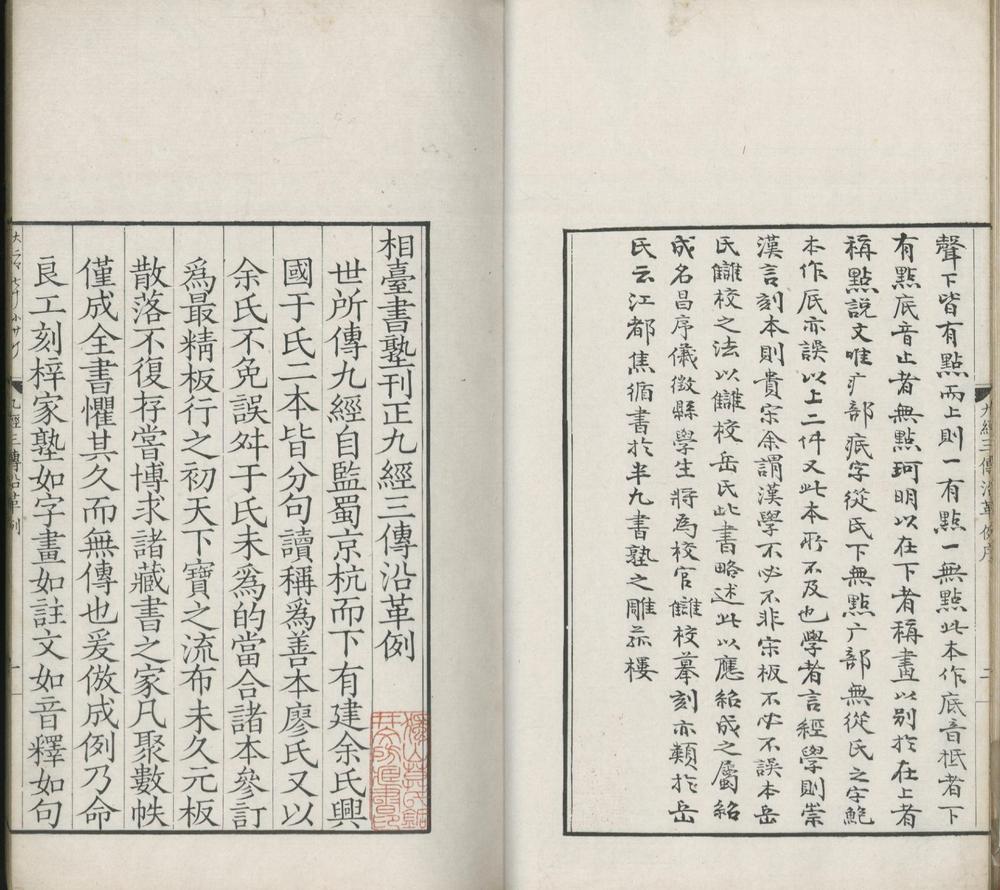 聲下皆有點而上則一有點一無點此本作底音柢者下
有點底音止者無點珂明以在下者稱畫以别於在上者
稱點說文唯疒部疷字從氏下無點广部無從氏之字鮑
本作厎亦誤以上二件又此本所不及也學者言經學則崇
漢言刻本則貴宋余謂漢學不必不非宋板不必不誤本岳
氏讎校之法以讎校岳氏此書略述此以應紹成之屬紹
成名昌序儀徵縣學生將為校官讎校摹刻亦類於岳
氏云江都焦循書於半九書塾之雕菰樓
九經三傳沿革例序
二
相臺書塾刊正九經三傳沿革例
世所傳九經自監蜀京杭而下有建余氏興
國于氏二本皆分句讀稱為善本廖氏又以
余氏不免誤舛于氏未為的當合諸本參訂
為最精板行之初天下寶之流布未久元板
散落不復存嘗博求諸藏書之家凡聚數帙
僅成全書懼其久而無傳也爰倣成例乃命
良工刻梓家塾如字畫如註文如音釋如句
九經三傳沿革例
一